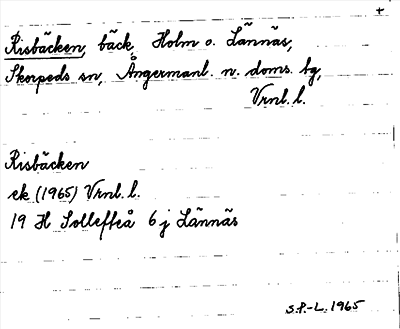 +
Risbäcken, bäck, Holm o. Lännäs,
Skorpeds sn, Ångermanl. n. doms. bg,
Vrnl. l.
Risbäcken
ek (1965) Vrnl. l.
19 H Solleffeå 6 j Lännäs
S.P.-L. 1965